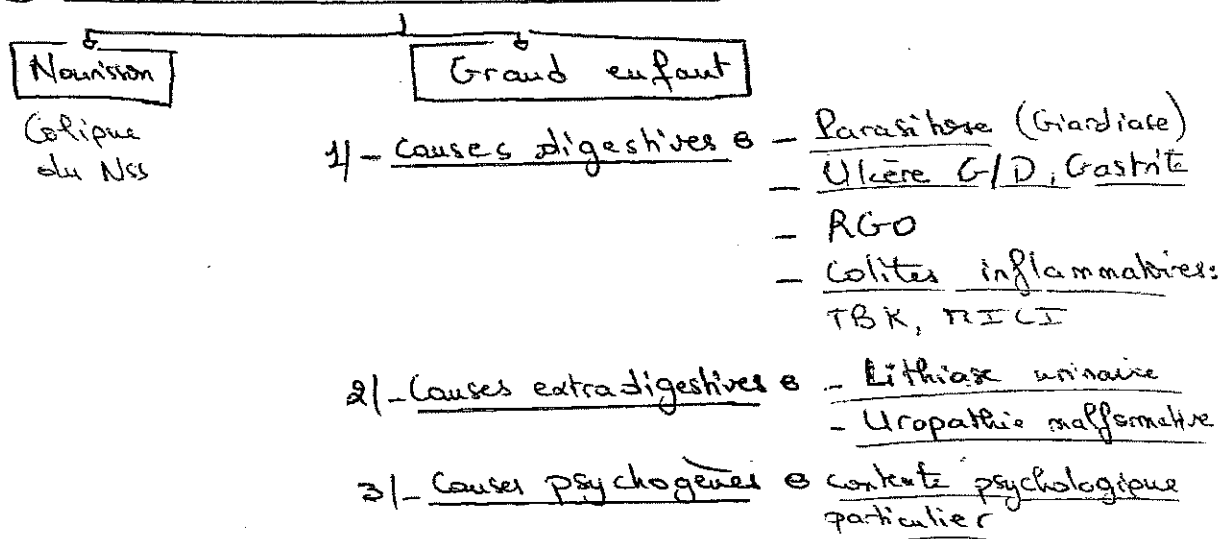 Nourisson
Grand enfant
Colique
du Nss
1/- Causes digestives : - Parasitose (Giardiase)
- Ulcère G/D, Gastrite
- RGO
- Colites inflammatoires:
TBK, MICI
2/- Causes extradigestives : - Lithiase urinaire
- Uropathie malformative
3/- Causes psychogènes : contexte psychologique
particulier